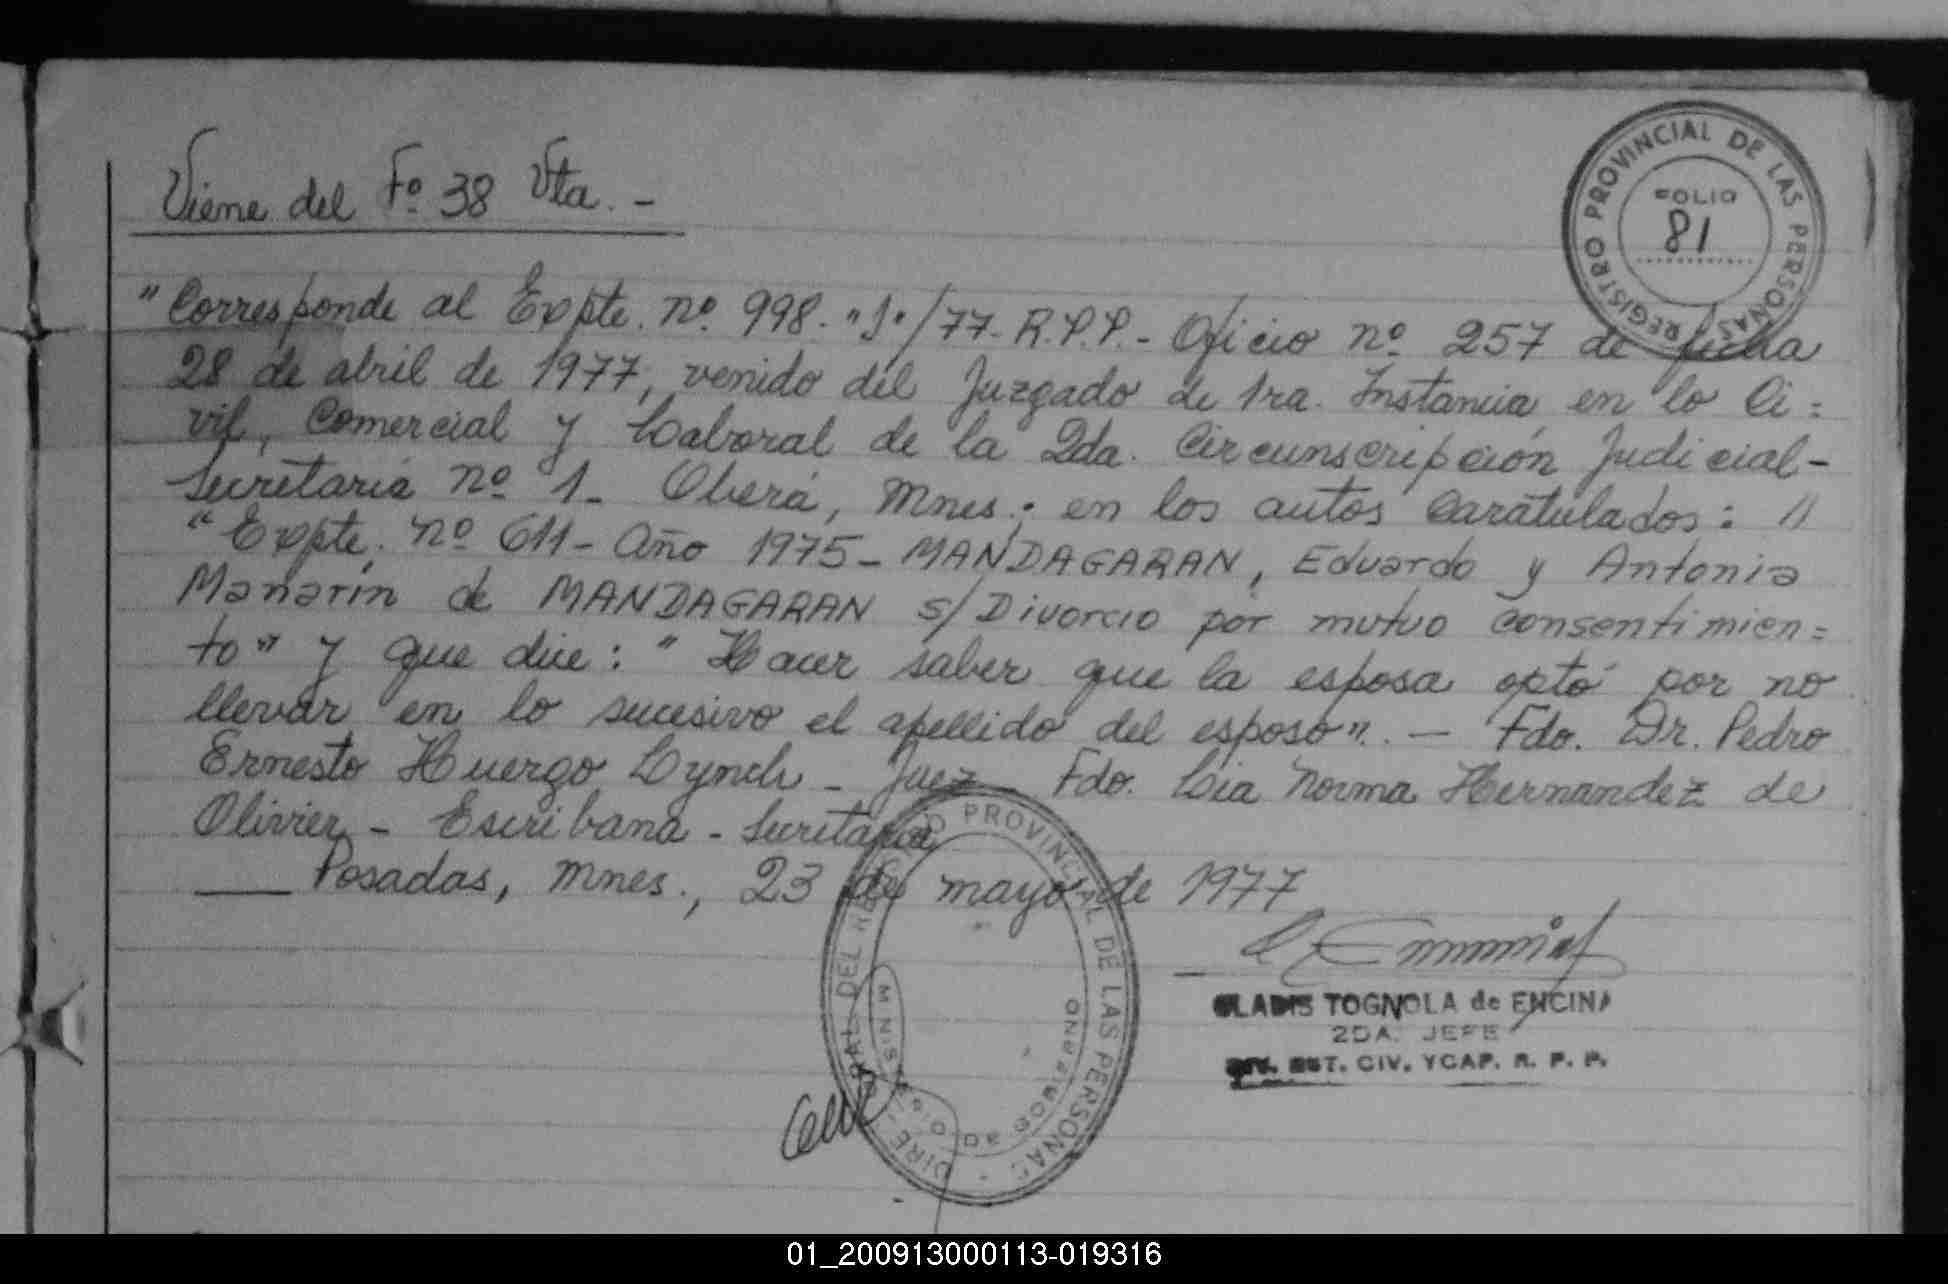 Viene del Fº 38 Vta. -
REGISTRO PROVINCIAL DE LAS PERSONAS
FOLIO
81
"Corresponde al Expte. nº 998. "J"/77- R.P.P. - Oficio nº 257 de fecha
28 de abril de 1977, venido del Juzgado de 1ra. Instancia en lo Ci=
vil, Comercial y Laboral de la 2da. Circunscripción Judicial-
Secretaría nº 1- Oberá, Mnes.; en los autos caratulados: "
"Expte. nº 611- Año 1975- MANDAGARAN, Eduardo y Antonia
Manarin de MANDAGARAN s/ Divorcio por mutuo consentimien=
to" y que dice: "Hacer saber que la esposa optó por no
llevar en lo sucesivo el apellido del esposo". - Fdo. Dr. Pedro
Ernesto Huergo Lynch - Juez - Fdo. Lia Norma Hernandez de
Olivier - Escribana - Secretaria
Posadas, Mnes., 23 de mayo de 1977
GLADIS TOGNOLA de ENCINA
2DA. JEFE
EST. CIV. Y CAP. R. P. P.
PROVINCIAL DE LAS PERSONAS
MINISTERIO DE GOBIERNO
01_200913000113-019316